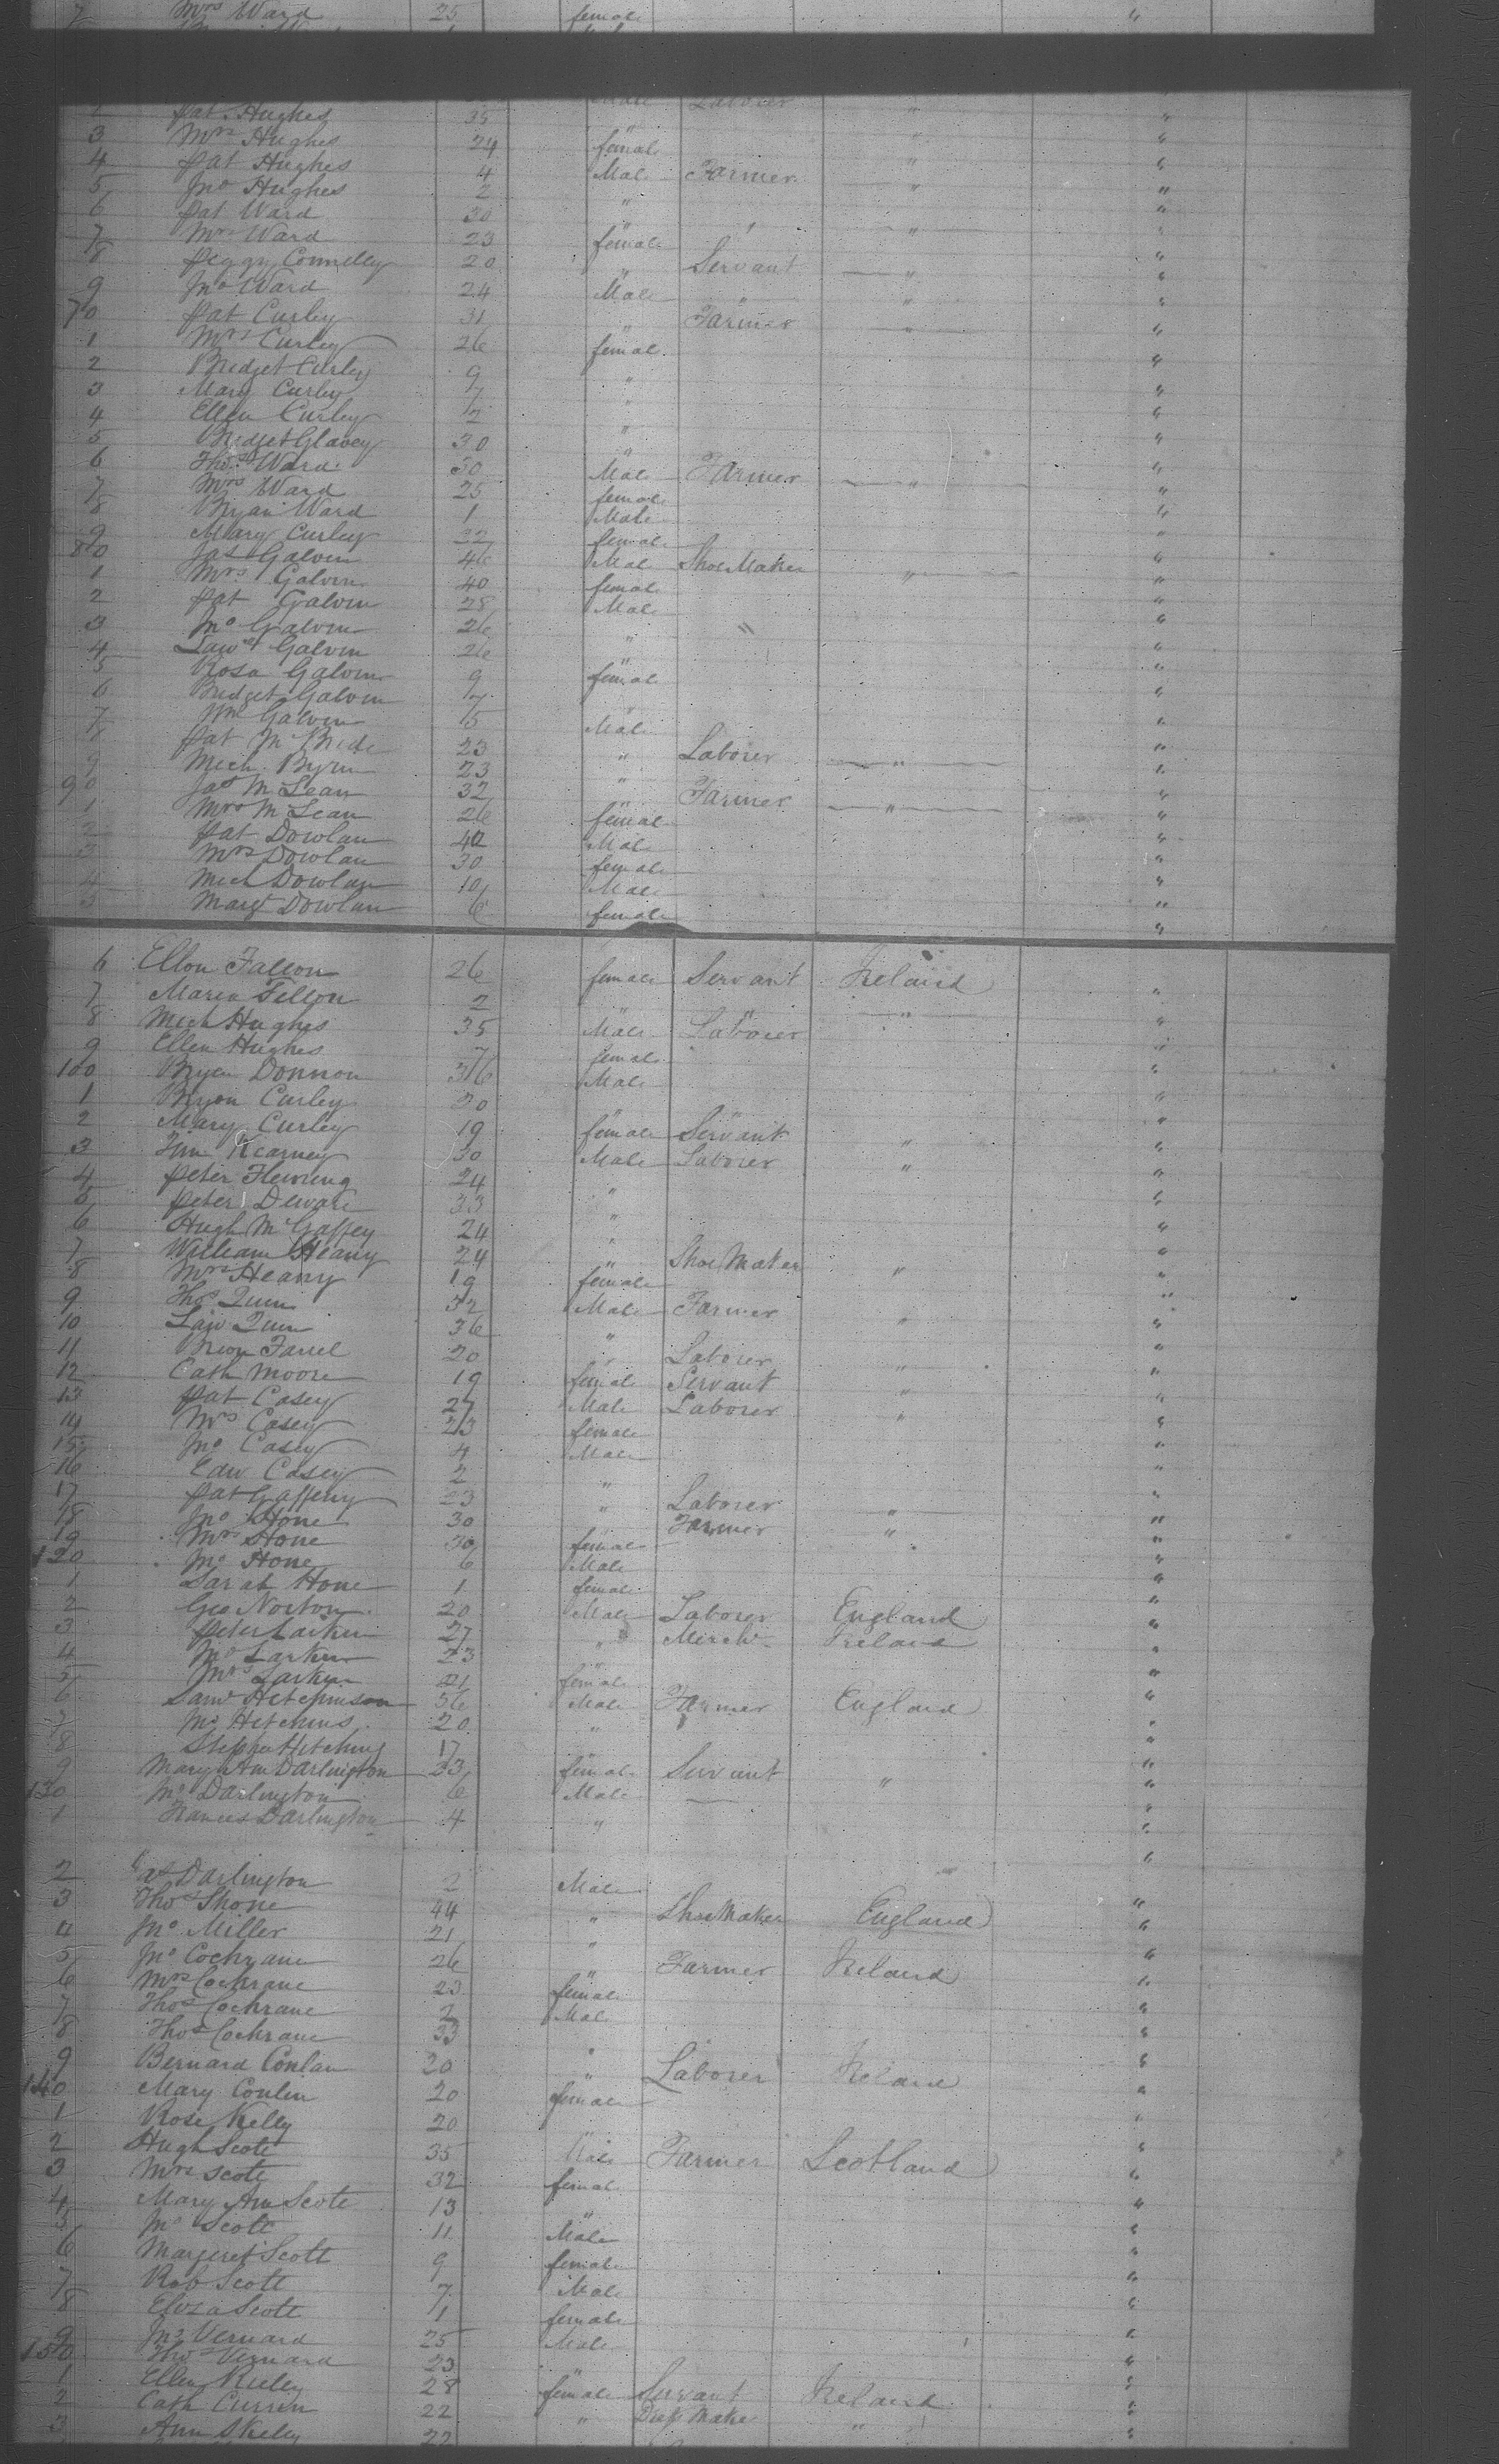 7 Mrs Ward 25 female "
2 Pat Hughes 35 Male Laborer " "
3 Mrs Hughes 24 female " "
4 Pat Hughes 4 Male Farmer " "
5 Jno Hughes 2 " " "
6 Pat Ward 30 " "
7 Mrs Ward 23 female " " "
8 Peggy Connelley 20 " Servant " "
9 Jno Ward 24 Male " " "
70 Pat Curley 31 " Farmer " "
1 Mrs Curley 26 female "
2 Bridget Curley 9 " "
3 Mary Curley 7 " "
4 Ellen Curley 2 " "
5 Bridget Glavey 30 " "
6 Thos Ward 30 Male Farmer " "
7 Mrs Ward 25 female "
8 Bryan Ward 1 Male "
9 Mary Curley 32 female "
80 Jas Galvin 46 Male Shoe Maker " "
1 Mrs Galvin 40 female "
2 Pat Galvin 28 Male "
3 Jno Galvin 26 " " "
4 Lawe Galvin 26 " "
5 Rosa Galvin 9 female "
6 Bridget Galvin 7 " "
7 Wm Galvin 5 Male "
8 Pat Mc Bride 23 " Laborer " "
9 Mich Byrn 23 " "
90 Jas Mc Lean 32 " Farmer " "
1 Mrs Mc Lean 26 female "
2 Pat Dowlan 40 Male "
3 Mrs Dowlan 30 female "
4 Mich Dowlan 10 Male "
5 Margt Dowlan 6 female "
6 Ellen Fallon 26 female Servant Ireland "
7 Maria Fellon 2 " " " "
8 Mich Hughes 35 Male Laborer "
9 Ellen Hughes 7 female "
100 Bryan Donnon 36 Male "
1 Bryan Curley 30 "
2 Mary Curley 19 female Servant " "
3 Tim Kearney 30 Male Laborer " "
4 Peter Fleming 24 " "
5 Peter Devare 33 " "
6 Hugh McGaffey 24 " "
7 William Heany 24 " Shoe Maker " "
8 Mrs Heany 19 female "
9 Thos Quin 32 Male Farmer " "
10 Law Quin 36 " "
11 Brian Farrel 20 " Laborer " "
12 Cath Moore 19 female Servant " "
13 Pat Casey 27 Male Laborer " "
14 Mrs Casey 23 female "
15 Jno Casey 4 Male "
16 Edw Casey 2 " "
17 Pat Gaffeny 23 " Laborer " "
18 Jno Hone 30 Farmer " "
19 Mrs Hone 30 female "
120 Jno Hone 6 Male "
1 Sarah Hone 1 female "
2 Geo Norton 20 Male Laborer England "
3 Peter Larkin 27 " Merch Ireland "
4 Jno Larkin 23 "
5 Mrs Larkin 21 female "
6 Saml Hitchinson 56 Male Farmer England "
7 Jno Hitchins 20 " "
8 Stephen Hitching 17 "
9 Mary Ann Darlington 33 female Servant " "
130 Jno Darlington 6 Male "
1 Frances Darlington 4 " "
2 Jas Darlington 2 Male "
3 Thos Shone 44 " Shoe Maker England "
4 Jno Miller 21 " "
5 Jno Cochrane 26 " Farmer Ireland "
6 Mrs Cochrane 23 female "
7 Thos Cochrane 2 Male "
8 Thos Cochrane 33 "
9 Bernard Conlan 20 " Laborer Ireland "
140 Mary Conlin 20 female "
1 Rose Kelly 20 "
2 Hugh Scott 35 Male Farmer Scotland "
3 Mrs Scott 32 female "
4 Mary Ann Scott 13 " "
5 Jno Scott 11 Male "
6 Margeret Scott 9 female "
7 Rob Scott 7 Male "
8 Eliza Scott 1 female "
9 Jno Vernard 25 Male "
150 Thos Vernard 23 "
1 Ellen Rieley 28 female Servant Ireland "
2 Cath Curren 22 " Dress Make " "
3 Ann Skeley 22